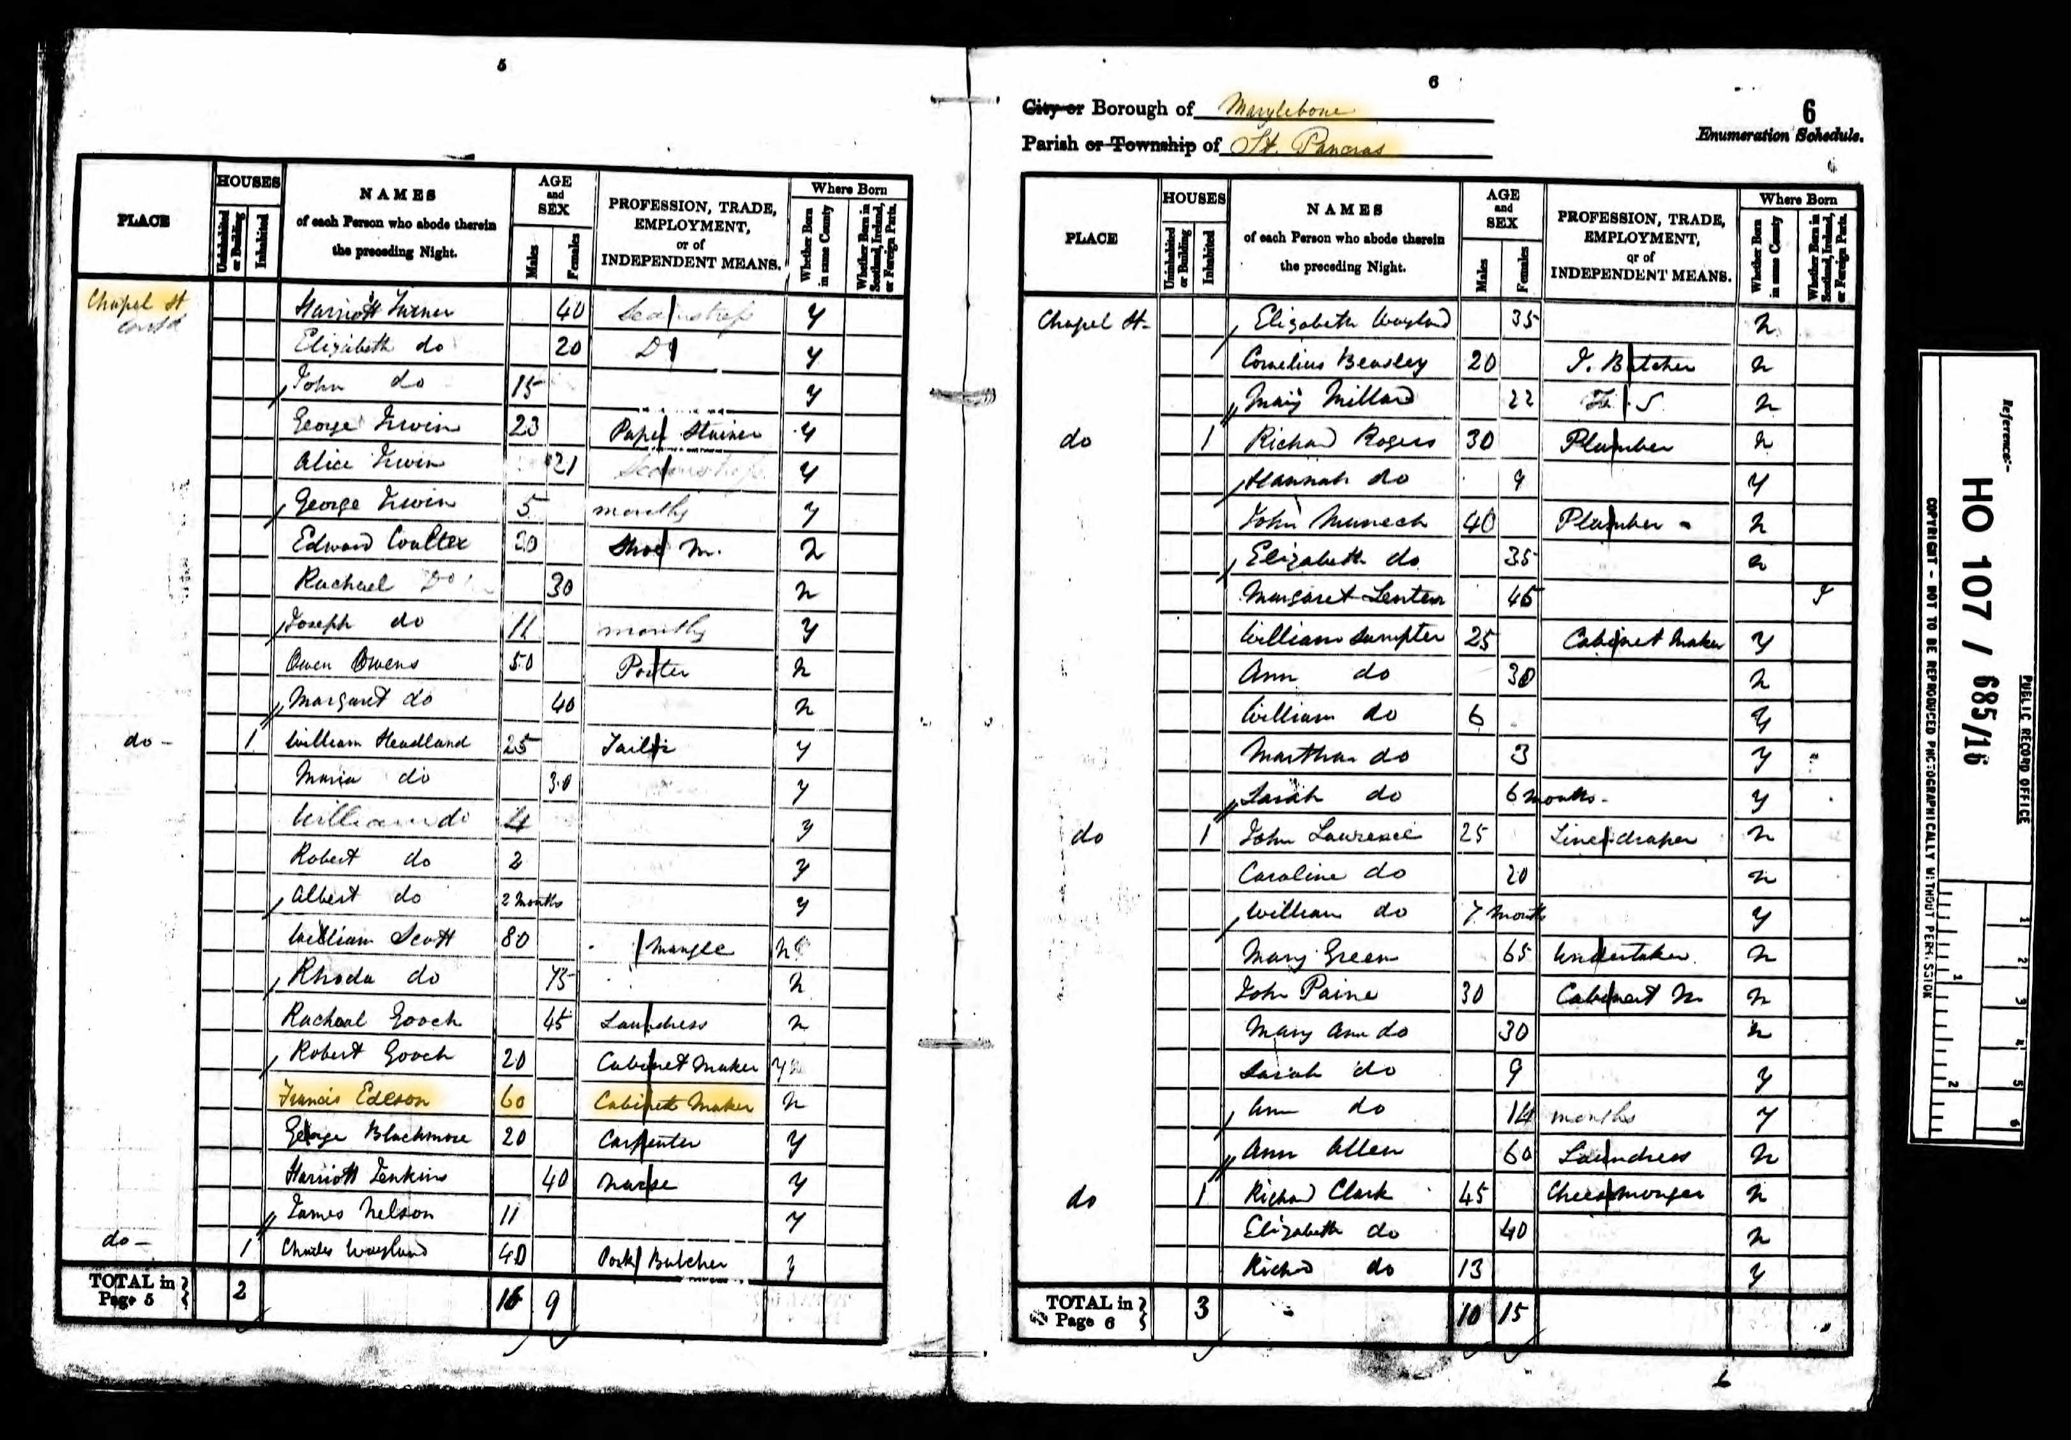 5
PLACE
HOUSES
Uninhabited or Building
Inhabited
NAMES
of each Person who abode therein
the preceding Night.
AGE
and
SEX
Males
Females
PROFESSION, TRADE,
EMPLOYMENT,
or of
INDEPENDENT MEANS.
Where Born
Whether Born in same County
Whether Born in Scotland, Ireland, or Foreign Parts.
Chapel St Harriott Turner 40 Seamstress y
Contd
Elizabeth do 20 Do y
John do 15 y
George Irwin 23 Paper Stainer y
Alice Irwin 21 Seamstress y
George Irwin 5 months y
Edward Coulter 30 Shoe M. n
Rachael Do 30 n
Joseph do 11 months y
Owen Owens 50 Porter n
Margaret do 40 n
do - 1 William Headland 25 Tailor y
Maria do 30 y
William do 4 y
Robert do 2 y
Albert do 2 Months y
William Scott 80 Mangle n
Rhoda do 75 n
Rachael Gooch 45 Laundress n
Robert Gooch 20 Cabinet Maker y
Francis Edeson 60 Cabinet Maker n
George Blackmore 20 Carpenter y
Harriott Jenkins 40 Nurse y
James Nelson 11 y
do - 1 Charles Wayland 40 Pork Butcher y
TOTAL in
Page 5 } 2 16 9
6
City or Borough of Marylebone
6
Parish or Township of St. Pancras
Enumeration Schedule.
PLACE
HOUSES
Uninhabited or Building
Inhabited
NAMES
of each Person who abode therein
the preceding Night.
AGE
and
SEX
Males
Females
PROFESSION, TRADE,
EMPLOYMENT,
or of
INDEPENDENT MEANS.
Where Born
Whether Born in same County
Whether Born in Scotland, Ireland, or Foreign Parts.
Chapel St- Elizabeth Wayland 35 n
Cornelius Beasley 20 J. Butcher n
Mary Millard 22 F. S. n
do 1 Richard Rogers 30 Plumber n
Hannah do 9 y
John Munech 40 Plumber - n
Elizabeth do 35 n
Margaret 45 I
William Sumpter 25 Cabinet Maker y
Ann do 30 n
William do 6 y
Martha do 3 y
Sarah do 6 months - y
do 1 John Lawrence 25 Linendraper n
Caroline do 20 n
William do 7 months y
Mary Green 65 Undertaker n
John Paine 30 Cabinet M n
Mary Ann do 30 n
Sarah do 9 y
Ann do 14 months y
Ann Allen 60 Laundress n
do 1 Richard Clark 45 Cheesemonger n
Elizabeth do 40 n
Richd do 13 y
TOTAL in
Page 6 } 3 10 15
6
Reference:-
HO 107 / 685/16
PUBLIC RECORD OFFICE
COPYRIGHT - NOT TO BE REPRODUCED PHOTOGRAPHICALLY WITHOUT PERMISSION
1
2
1
2
3
4
5
6